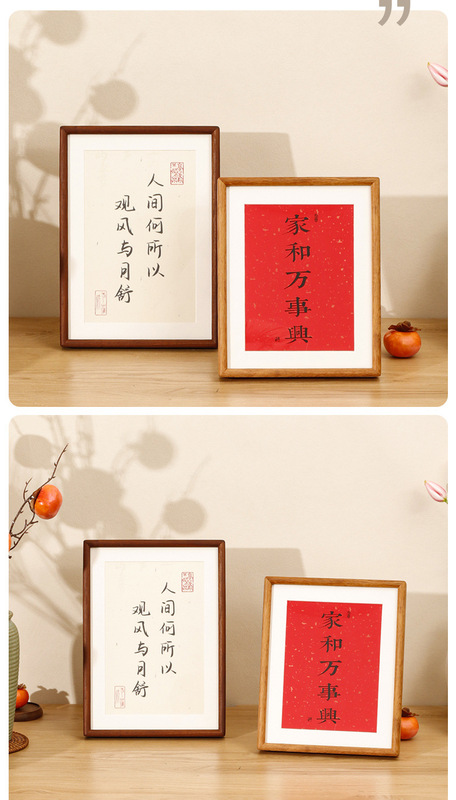 人间何所以
观风与月舒
家和万事興
人间何所以
观风与月舒
家和万事興